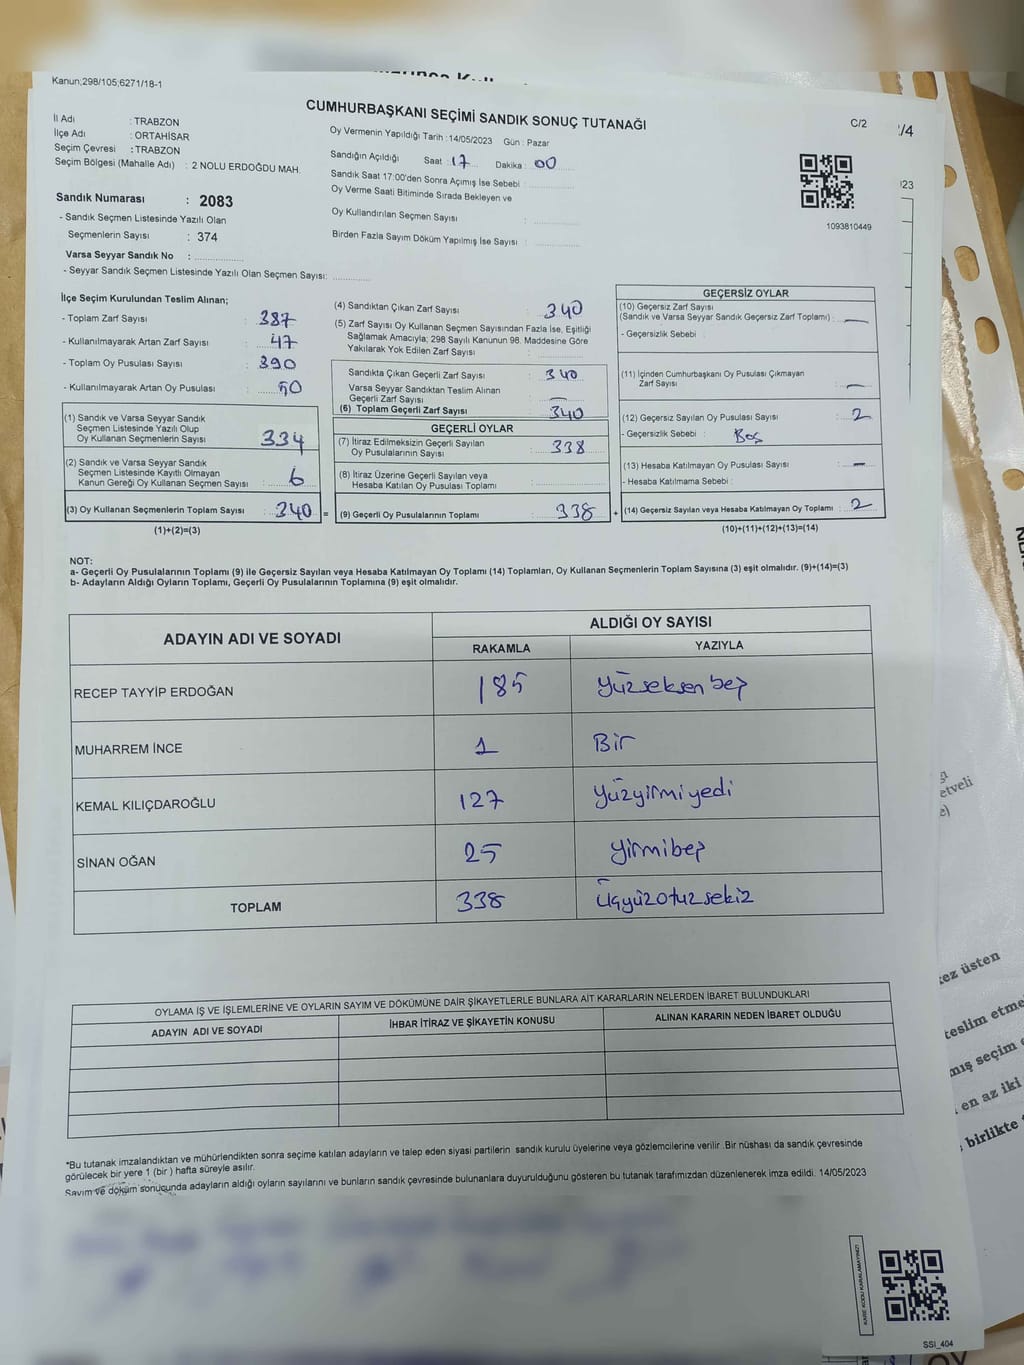 Kanun;298/105;6271/18-1
CUMHURBAŞKANI SEÇİMİ SANDIK SONUÇ TUTANAĞI
C/2
/4
İl Adı : TRABZON
İlçe Adı : ORTAHİSAR
Seçim Çevresi : TRABZON
Seçim Bölgesi (Mahalle Adı) : 2 NOLU ERDOĞDU MAH.
Sandık Numarası : 2083
- Sandık Seçmen Listesinde Yazılı Olan
Seçmenlerin Sayısı : 374
Varsa Seyyar Sandık No :
- Seyyar Sandık Seçmen Listesinde Yazılı Olan Seçmen Sayısı:
Oy Vermenin Yapıldığı Tarih : 14/05/2023 Gün : Pazar
Sandığın Açıldığı Saat : 17 Dakika : 00
Sandık Saat 17:00'den Sonra Açımış İse Sebebi :
Oy Verme Saati Bitiminde Sırada Bekleyen ve
Oy Kullandırılan Seçmen Sayısı :
Birden Fazla Sayım Döküm Yapılmış İse Sayısı :
1093810449
023
İlçe Seçim Kurulundan Teslim Alınan;
- Toplam Zarf Sayısı : 387
- Kullanılmayarak Artan Zarf Sayısı : 47
- Toplam Oy Pusulası Sayısı : 390
- Kullanılmayarak Artan Oy Pusulası : 50
(1) Sandık ve Varsa Seyyar Sandık
Seçmen Listesinde Yazılı Olup
Oy Kullanan Seçmenlerin Sayısı 334
(2) Sandık ve Varsa Seyyar Sandık
Seçmen Listesinde Kayıtlı Olmayan
Kanun Gereği Oy Kullanan Seçmen Sayısı : 6
(3) Oy Kullanan Seçmenlerin Toplam Sayısı 340
(1)+(2)=(3)
(4) Sandıktan Çıkan Zarf Sayısı : 340
(5) Zarf Sayısı Oy Kullanan Seçmen Sayısından Fazla İse, Eşitliği
Sağlamak Amacıyla; 298 Sayılı Kanunun 98. Maddesine Göre
Yakılarak Yok Edilen Zarf Sayısı :
Sandıkta Çıkan Geçerli Zarf Sayısı : 340
Varsa Seyyar Sandıktan Teslim Alınan
Geçerli Zarf Sayısı : —
(6) Toplam Geçerli Zarf Sayısı : 340
GEÇERLİ OYLAR
(7) İtiraz Edilmeksizin Geçerli Sayılan
Oy Pusulalarının Sayısı : 338
(8) İtiraz Üzerine Geçerli Sayılan veya
Hesaba Katılan Oy Pusulası Toplamı :
= (9) Geçerli Oy Pusulalarının Toplamı 338
GEÇERSİZ OYLAR
(10) Geçersiz Zarf Sayısı
(Sandık ve Varsa Seyyar Sandık Geçersiz Zarf Toplamı) : —
- Geçersizlik Sebebi :
(11) İçinden Cumhurbaşkanı Oy Pusulası Çıkmayan
Zarf Sayısı : —
(12) Geçersiz Sayılan Oy Pusulası Sayısı : 2
- Geçersizlik Sebebi : Boş
(13) Hesaba Katılmayan Oy Pusulası Sayısı : —
- Hesaba Katılmama Sebebi :
+ (14) Geçersiz Sayılan veya Hesaba Katılmayan Oy Toplamı : 2
(10)+(11)+(12)+(13)=(14)
NOT:
a- Geçerli Oy Pusulalarının Toplamı (9) ile Geçersiz Sayılan veya Hesaba Katılmayan Oy Toplamı (14) Toplamları, Oy Kullanan Seçmenlerin Toplam Sayısına (3) eşit olmalıdır. (9)+(14)=(3)
b- Adayların Aldığı Oyların Toplamı, Geçerli Oy Pusulalarının Toplamına (9) eşit olmalıdır.
ADAYIN ADI VE SOYADI
ALDIĞI OY SAYISI
RAKAMLA YAZIYLA
RECEP TAYYİP ERDOĞAN 185 Yüzseksenbeş
MUHARREM İNCE 1 Bir
KEMAL KILIÇDAROĞLU 127 Yüzyirmiyedi
SİNAN OĞAN 25 Yirmibeş
TOPLAM 338 Üçyüzotuzsekiz
OYLAMA İŞ VE İŞLEMLERİNE VE OYLARIN SAYIM VE DÖKÜMÜNE DAİR ŞİKAYETLERLE BUNLARA AİT KARARLARIN NELERDEN İBARET BULUNDUKLARI
ADAYIN ADI VE SOYADI İHBAR İTİRAZ VE ŞİKAYETİN KONUSU ALINAN KARARIN NEDEN İBARET OLDUĞU
*Bu tutanak imzalandıktan ve mühürlendikten sonra seçime katılan adayların ve talep eden siyasi partilerin sandık kurulu üyelerine veya gözlemcilerine verilir .Bir nüshası da sandık çevresinde
görülecek bir yere 1 (bir ) hafta süreyle asılır.
Sayım ve döküm sonucunda adayların aldığı oyların sayılarını ve bunların sandık çevresinde bulunanlara duyurulduğunu gösteren bu tutanak tarafımızdan düzenlenerek imza edildi. 14/05/2023
etveli
üsten
teslim etme
mış seçim
en az iki
birlikte
KARE KODU KARALAMAYINIZ!
SSI_404